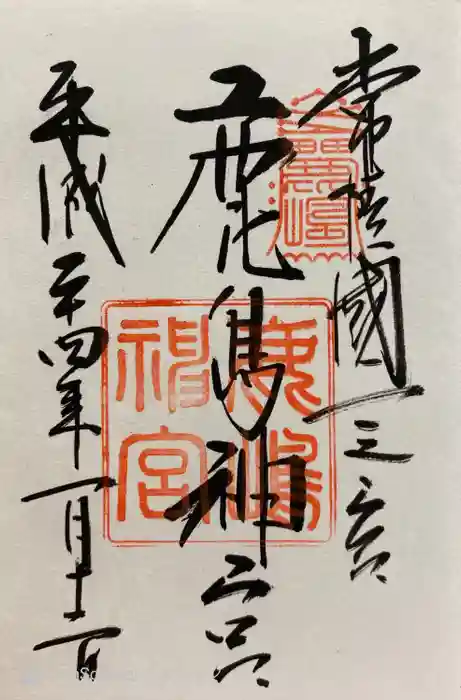 常陸國一之宮
鹿島神宮
平成二十四年一月十二日
鹿嶋
神宮